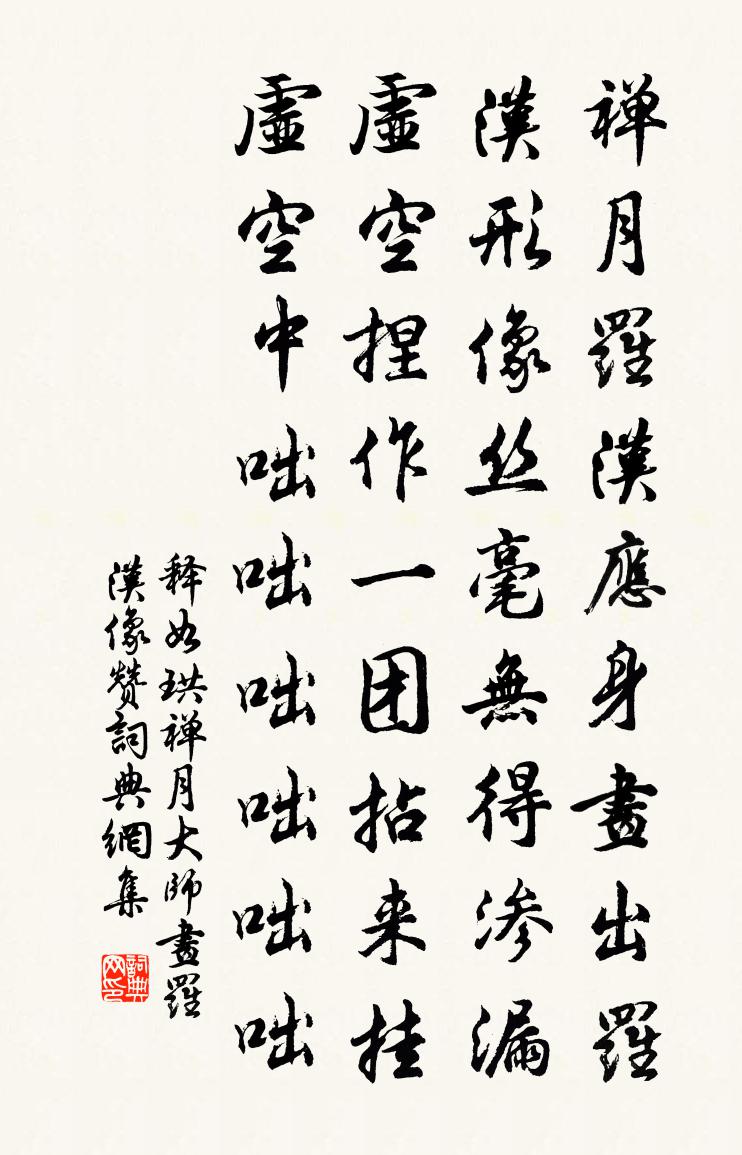 禅月羅漢應身畫出羅
漢形像丝毫無得渗漏
虛空捏作一团拈来挂
虛空中咄咄咄咄咄咄
释如珙禅月大師畫羅
漢像赞詞典網集
詞典网印